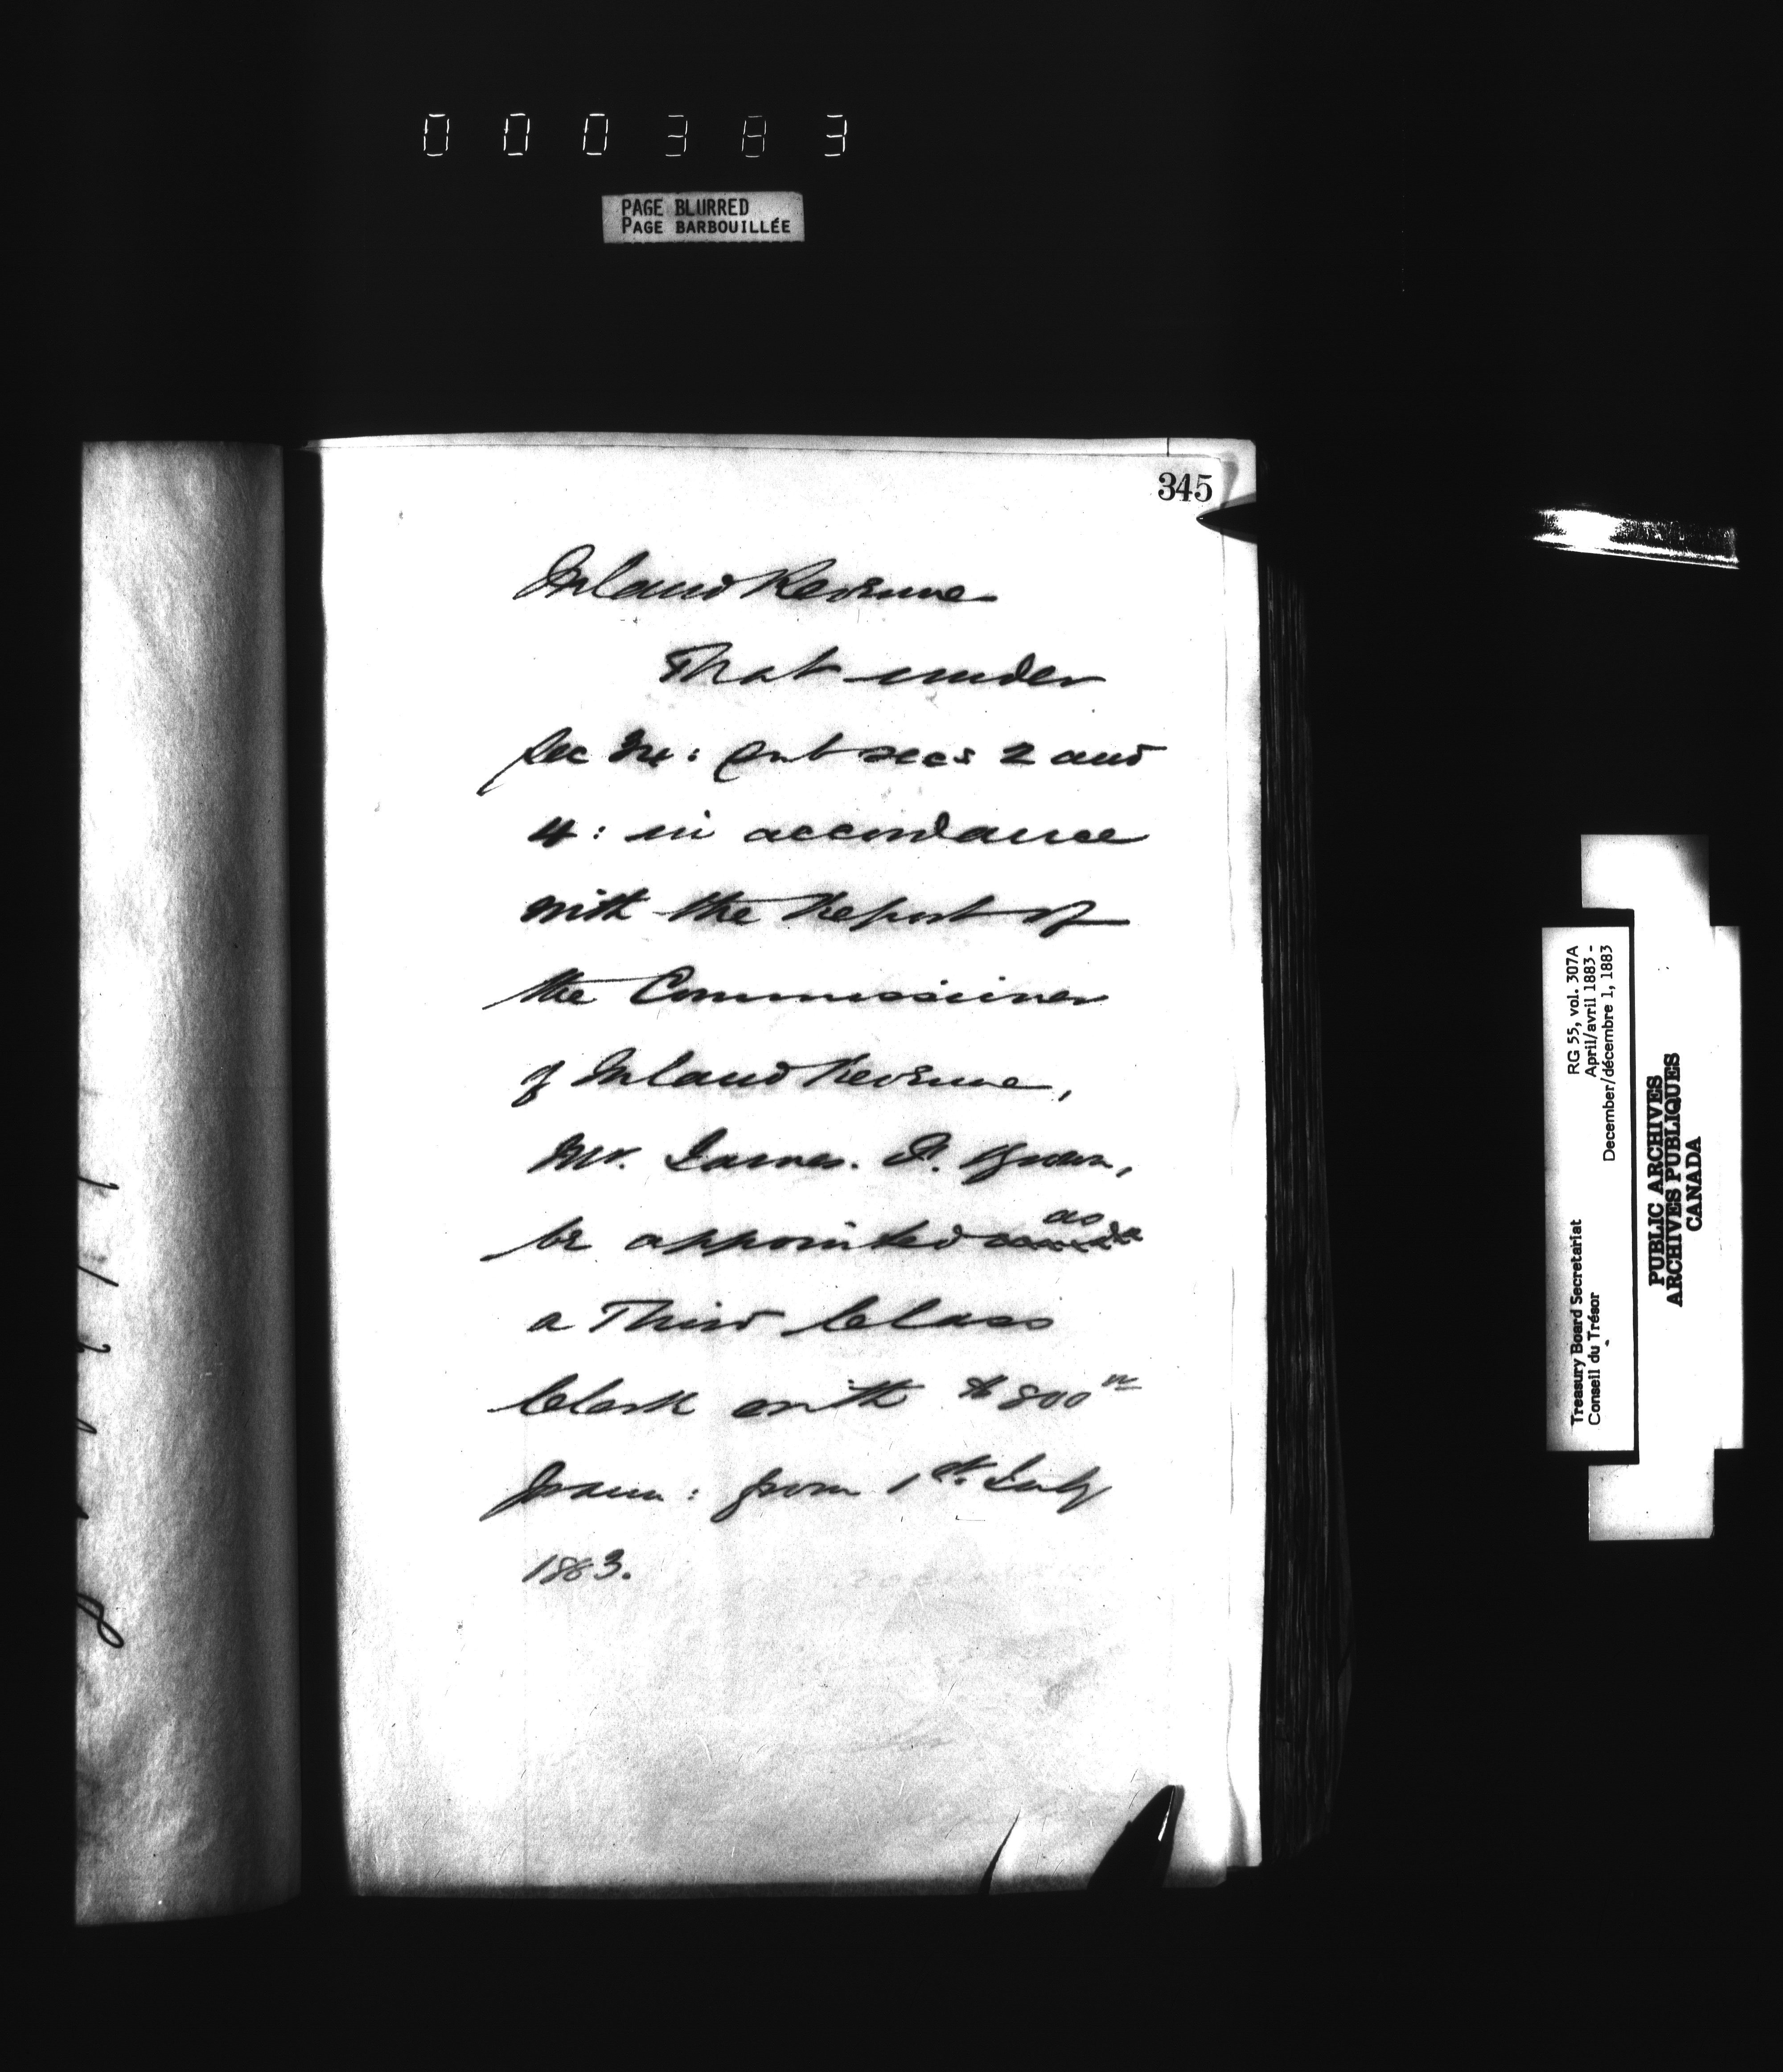 000383
PAGE BLURRED
PAGE BARBOUILLÉE
345
Inland Revenue
That under
Sec : sub secs 2 and
4: in accordance
with the Report of
the Commissioner
of Inland Revenue,
Mr. James.
be appointed as
a Third Class
Clerk with $800
from 1st. July
1883.
Treasury Board Secretariat RG 55, vol. 307A
Conseil du Trésor April/avril 1883 -
December/décembre 1, 1883
PUBLIC ARCHIVES
ARCHIVES PUBLIQUES
CANADA